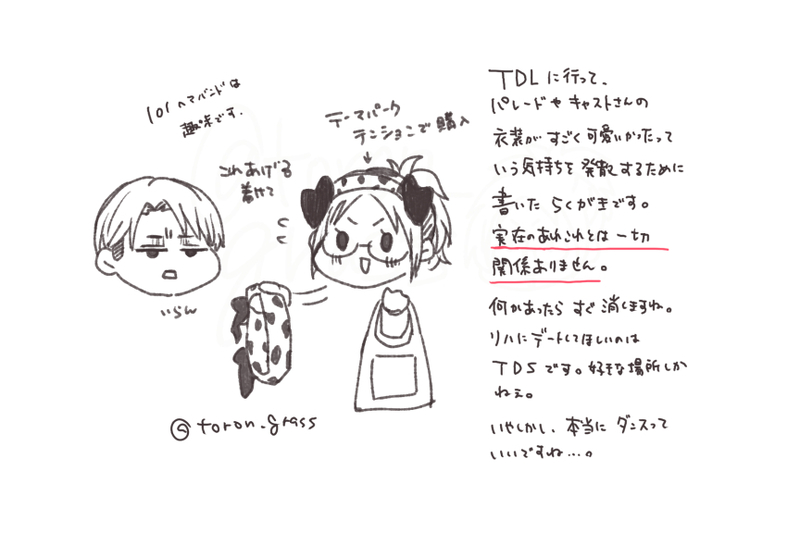 101ヘアバンドは
趣味です.
テーマパーク
テンションで購入
これあげる
着けて
いらん
@toron_grass
TDLに行って、
パレードやキャストさんの
衣装がすごく可愛いかったって
いう気持ちを発散するために
書いたらくがきです。
実在のあれこれとは一切
関係ありません。
何かあったらすぐ消しますね。
リハにデートしてほしいのは
TDSです。好きな場所しか
ねぇ。
いやしかし、本当にダンスって
いいですね…。